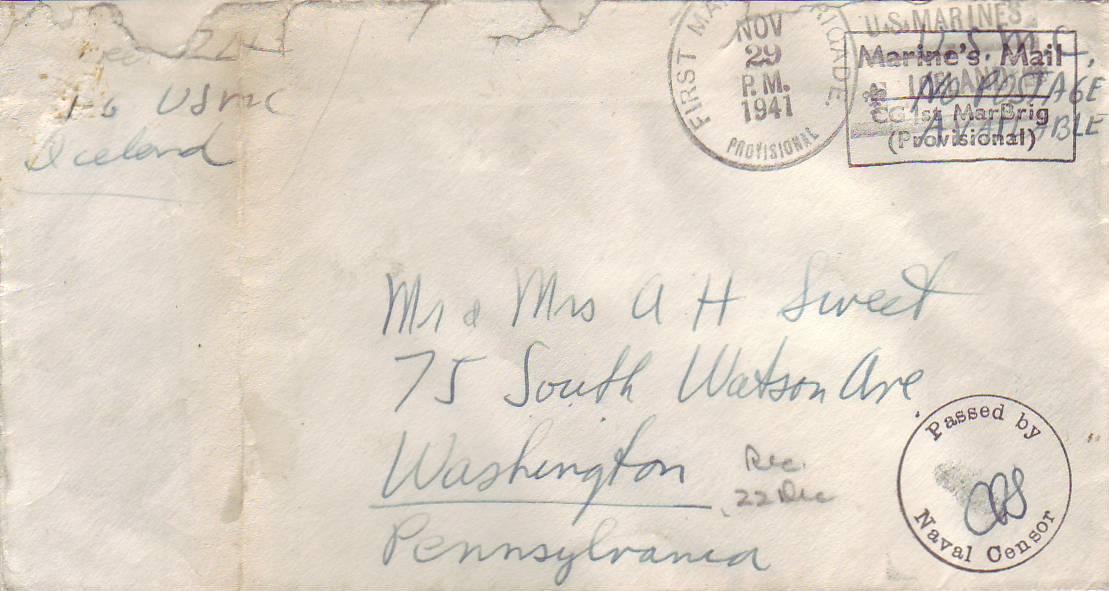 USMC
Iceland
FIRST MA BRIGADE.
NOV
29
P.M.
1941
PROVISIONAL
U.S. MARINES
Marine's Mail
ICELAND
CG 1st MarBrig
(Provisional)
U.S.M.C.
NO POSTAGE
AVAILABLE
Mr & Mrs A H Sweet
75 South Watson Ave
Washington
Rec.
22 Dec
Pennsylvania
Passed by
Naval Censor